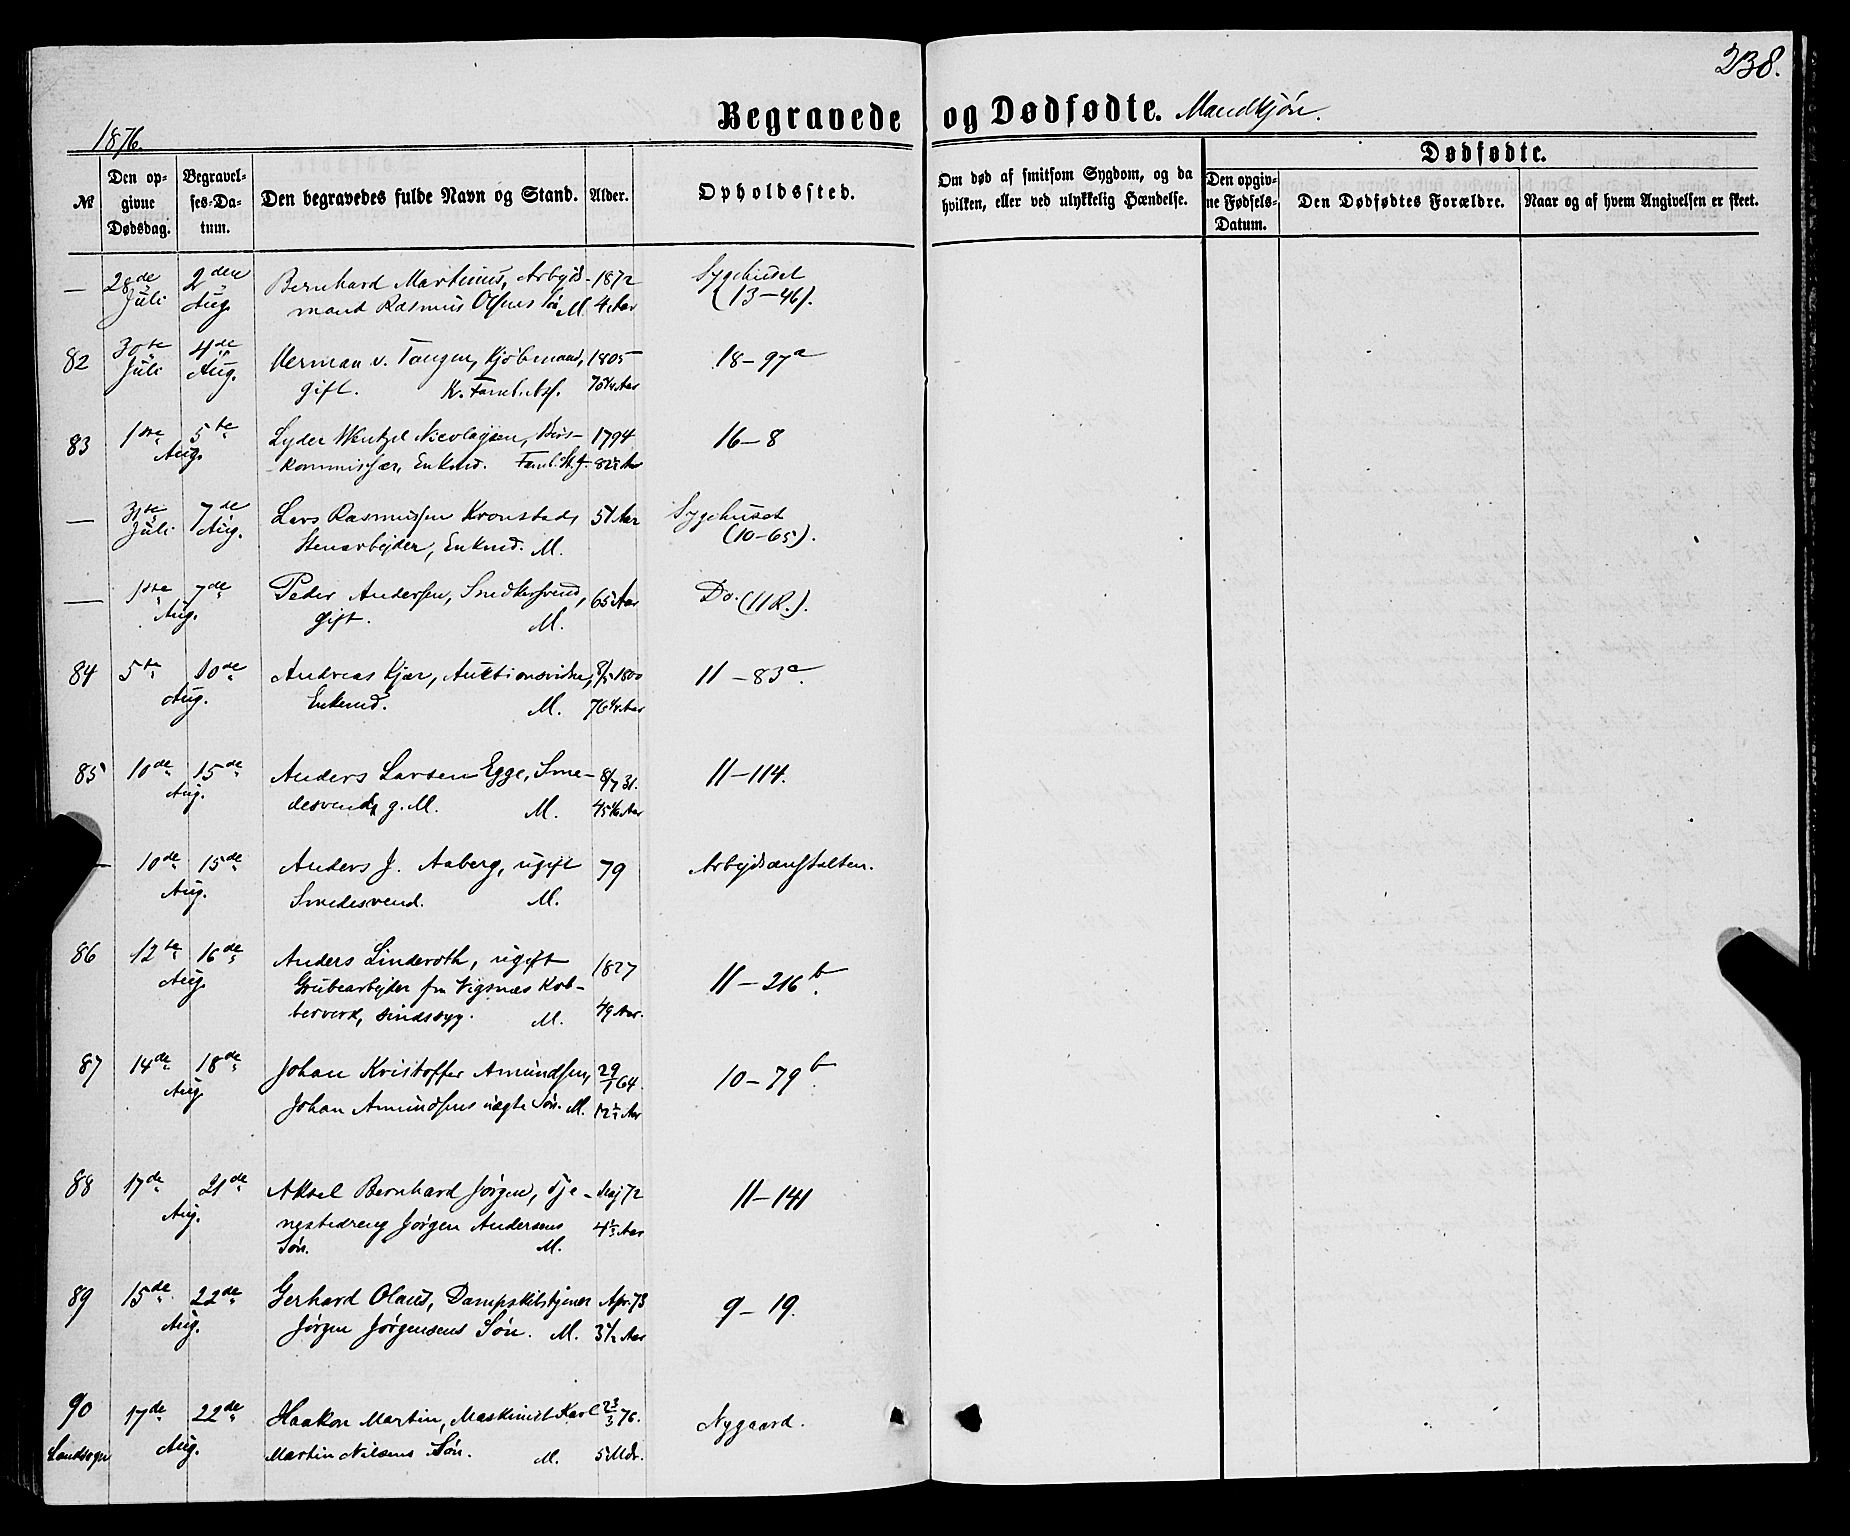 238.
Begravede og Dødfødte. Mandkjøn.
1876.
№
Den opgivne Dødsdag.
Begravelses-Datum.
Den begravedes fulde Navn og Stand.
Alder.
Opholdssted.
Om død af smitsom Sygdom, og da hvilken, eller ved ulykkelig Hændelse.
Dødfødte.
Den opgivne Fødsels-Datum.
Den Dødfødtes Forældre.
Naar og af hvem Angivelsen er skeet.
— 28de 2den Bernhard Martinus, Arbejds- 1872 Sygehuset
Juli Aug. mand Rasmus Olsens Søn M. 4 Aar (13–46).
82 30te 4de Herman v. Tangen, Kjøbmand, 1805 18–97a
Juli Aug. gift. K. 70 Aar
83 1ste 5te Lyder Wentzel Nicolaysen, 1794 16–8
Aug. kommissær, Enkmd. Aar
— 31te 7de Lars Rasmussen Kronstad, 51 Aar Sygehuset
Juli Aug. Stenarbejder, Enkmd. M. (10–65).
— 1ste 7de Peder Andersen, Snedkersvend, 65 Aar Do. (11R.).
Aug. gift. M.
84 5te 10de Andreas Kjær, Auktionsvidne, 8/5 1800 11–83a.
Aug. Enkemd. M. 76 1/4 Aar
85 10de 15de Anders Larsen Egge, Sme- 8/7 31. 11–114.
Aug. desvend, g. M. M. 45 1/6 Aar
— 10de 15de Anders J. Aaberg, ugift 79 Arbejdsanstalten.
Aug. Smedesvend. M.
86 12te 16de Anders Linderoth, ugift 1827 11–216b.
Aug. Grubearbejder fra Vigsnæs Kob-
berverk, sindssyg. M. 49 Aar.
87 14de 18de Johan Kristoffer Amundsen, 29/1 64. 10–79b.
Aug. Johan Amundsens uægte Søn. M. 12 1/2 Aar
88 17de 21de Aksel Bernhard Jørgen, Tje- Maj 72 11–141
Aug. nestedreng Jørgen Andersens 4 1/3 Aar
Søn. M.
89 15de 22de Gerhard Olaus, Dampskibstjener Apr. 73 9–19.
Aug. Jørgen Jørgensens Søn. M. 3 1/2 Aar
90 17de 22de Haakon Martin, Maskinist Karl 23/3 76. Nygaard.
Landsogn Aug. Martin Nilsens Søn. M. 5 Mdr.